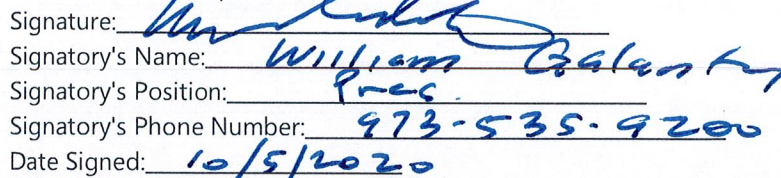 Signature:
Signatory's Name: William Galanty
Signatory's Position: Pres.
Signatory's Phone Number: 973-535-9200
Date Signed: 10/5/2020